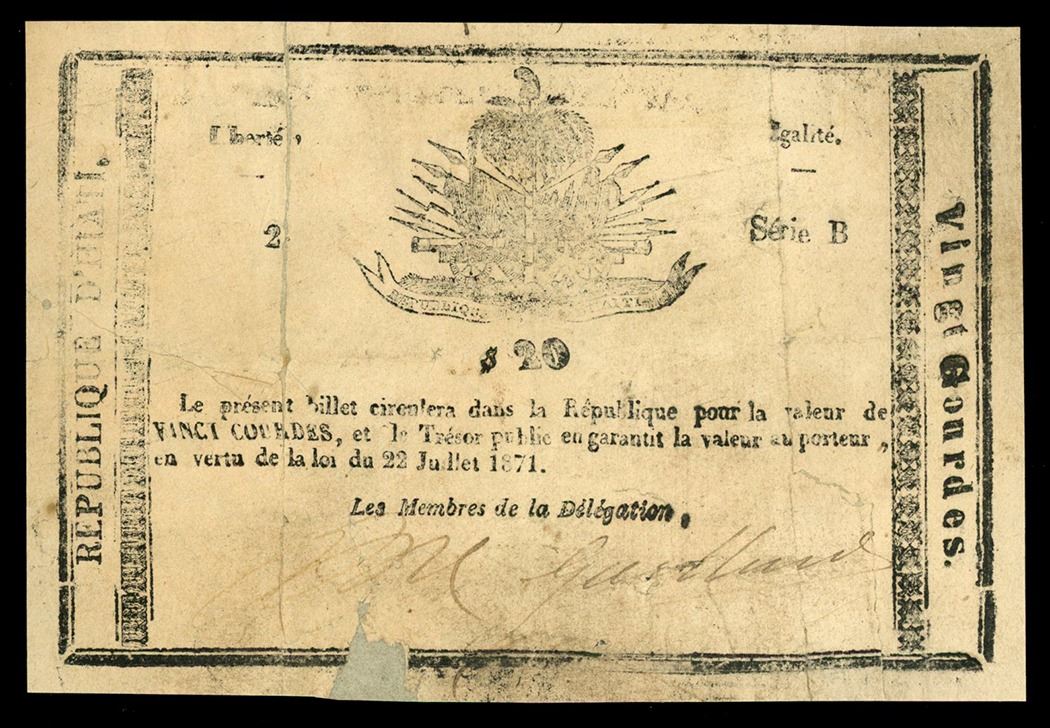 Liberté,
Egalité.
2
Série B
REPUBLIQUE
$ 20
Le présent billet circulera dans la République pour la valeur de
VINGT GOURDES, et le Trésor public en garantit la valeur au porteur,
en vertu de la loi du 22 Juillet 1871.
Les Membres de la Délégation,
REPUBLIQUE D'HAITI.
Vingt Gourdes.